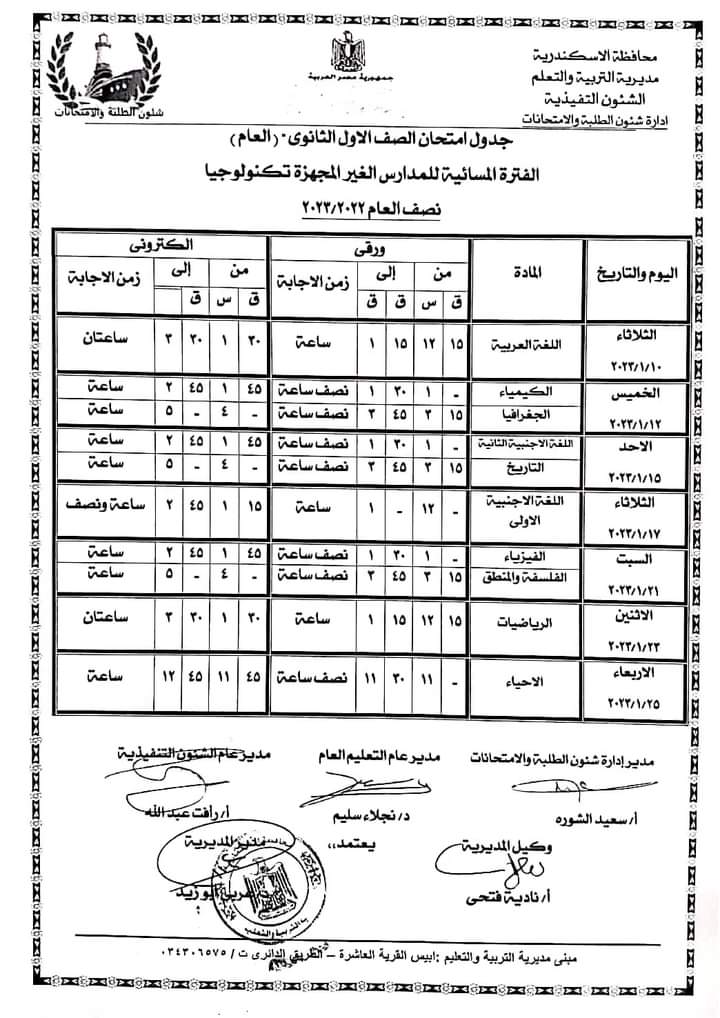 محافظة الاسكندرية
مديرية التربية والتعلم
الشئون التنفيذية
إدارة شئون الطلبة والامتحانات
جمهورية مصر العربية
شئون الطلبة والامتحانات
جدول امتحان الصف الاول الثانوى - (العام)
الفترة المسائية للمدارس الغير المجهزة تكنولوجيا
نصف العام ٢٠٢٣/٢٠٢٢
اليوم والتاريخ المادة ورقى الكترونى
من إلى زمن الاجابة من إلى زمن الاجابة
ق س ق ق ق س ق
الثلاثاء ٢٠٢٣/١/١٠ اللغة العربية ١٥ ١٢ ١٥ ١ ساعة ٣٠ ١ ٣٠ ٣ ساعتان
الخميس ٢٠٢٣/١/١٢ الكيمياء - ١ ٣٠ ١ نصف ساعة ٤٥ ١ ٤٥ ٢ ساعة
الجغرافيا ١٥ ٣ ٤٥ ٣ نصف ساعة - ٤ - ٥ ساعة
الاحد ٢٠٢٣/١/١٥ اللغة الاجنبية الثانية - ١ ٣٠ ١ نصف ساعة ٤٥ ١ ٤٥ ٢ ساعة
التاريخ ١٥ ٣ ٤٥ ٣ نصف ساعة - ٤ - ٥ ساعة
الثلاثاء ٢٠٢٣/١/١٧ اللغة الاجنبية الاولى - ١٢ - ١ ساعة ١٥ ١ ٤٥ ٢ ساعة ونصف
السبت ٢٠٢٣/١/٢١ الفيزياء - ١ ٣٠ ١ نصف ساعة ٤٥ ١ ٤٥ ٢ ساعة
الفلسفة والمنطق ١٥ ٣ ٤٥ ٣ نصف ساعة - ٤ - ٥ ساعة
الاثنين ٢٠٢٣/١/٢٣ الرياضيات ١٥ ١٢ ١٥ ١ ساعة ٣٠ ١ ٣٠ ٣ ساعتان
الاربعاء ٢٠٢٣/١/٢٥ الاحياء - ١١ ٣٠ ١١ نصف ساعة ٤٥ ١١ ٤٥ ١٢ ساعة
مدير إدارة شئون الطلبة والامتحانات مدير عام التعليم العام مدير عام الشئون التنفيذية
أ/ سعيد الشوره د/ نجلاء سليم أ/ رأفت عبد الله
وكيل المديرية يعتمد،، مدير المديرية
أ/ نادية فتحى عربى أبو زيد
مبنى مديرية التربية والتعليم : ابيس القرية العاشرة – الطريق الدائرى ت / ٠٣٤٣٠٦٥٧٥